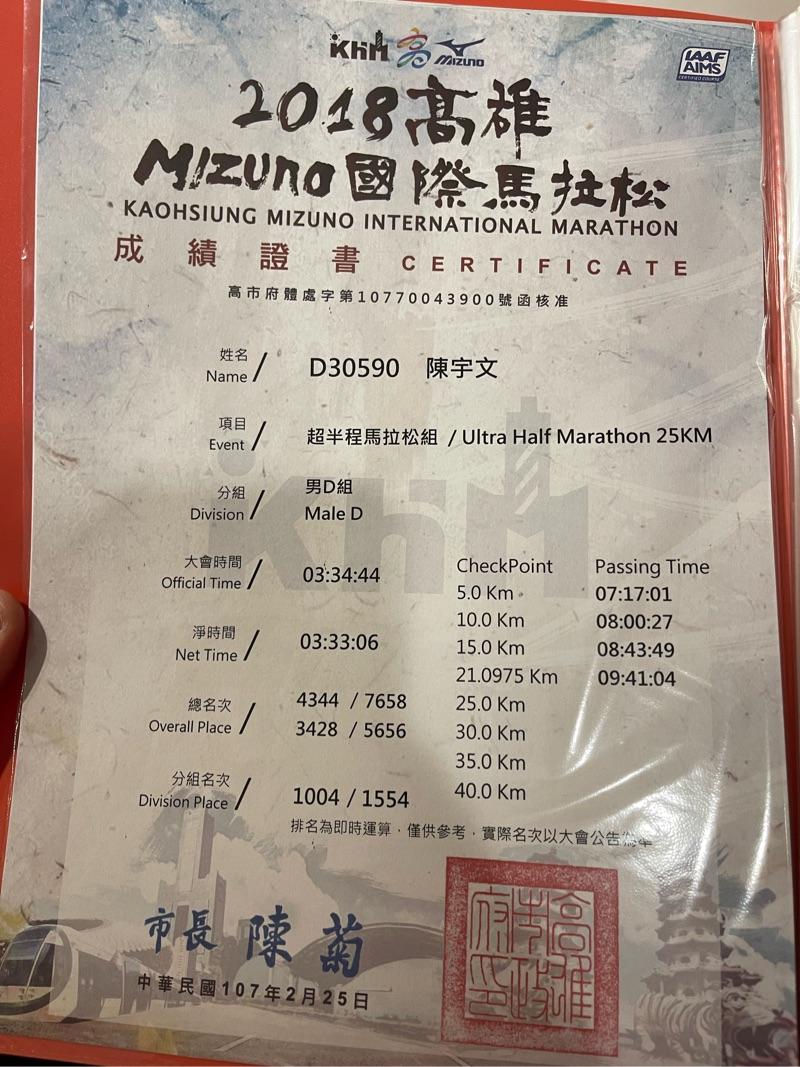 KHH 高 MIZUNO
IAAF
AIMS
CERTIFIED COURSE
2018高雄
MIZUNO國際馬拉松
KAOHSIUNG MIZUNO INTERNATIONAL MARATHON
成績證書 CERTIFICATE
高市府體處字第10770043900號函核准
姓名
Name / D30590 陳宇文
項目
Event / 超半程馬拉松組 / Ultra Half Marathon 25KM
分組
Division / 男D組
Male D
大會時間
Official Time / 03:34:44
淨時間
Net Time / 03:33:06
總名次
Overall Place / 4344 / 7658
3428 / 5656
分組名次
Division Place / 1004 / 1554
CheckPoint Passing Time
5.0 Km 07:17:01
10.0 Km 08:00:27
15.0 Km 08:43:49
21.0975 Km 09:41:04
25.0 Km
30.0 Km
35.0 Km
40.0 Km
排名為即時運算，僅供參考，實際名次以大會公告為準
市長 陳菊
中華民國107年2月25日
高雄市政府印
KHH